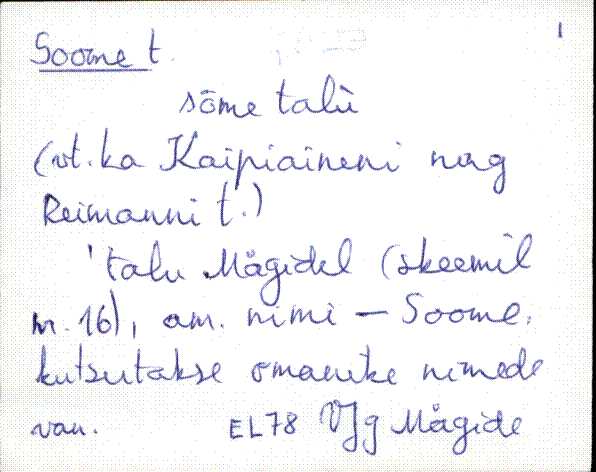 1
Soome t.
sōme talù
(vt. ka Kaipiaineni nag
Reimanni t.)
'talu Mågidel (skeemil
nr. 16), am. nimi – Soome,
kutsutakse omanike nimede
van. EL78 VJg Mågide